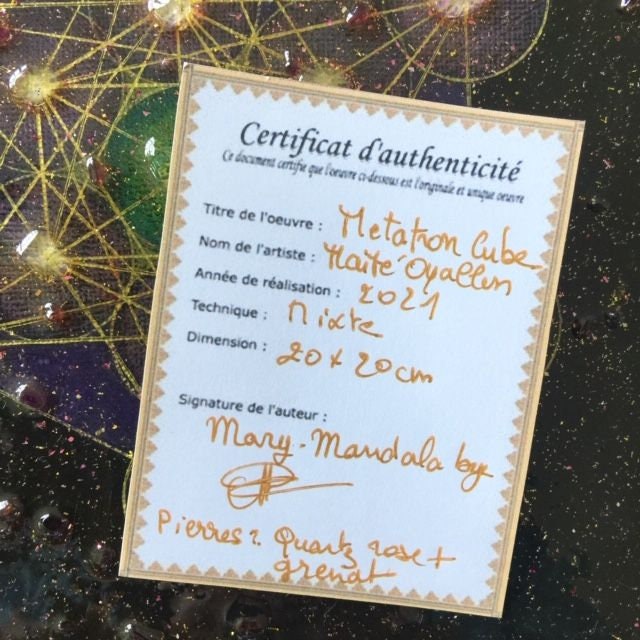 Certificat d'authenticité
Ce document certifie que l'oeuvre ci-dessous est l'originale et unique oeuvre
Titre de l'oeuvre : Metatron Cube
Nom de l'artiste : Maïté Oyallon
Année de réalisation : 2021
Technique : Mixte
Dimension : 20 x 20 cm
Signature de l'auteur :
Mary-Mandala by
Pierres : Quartz rose +
grenat